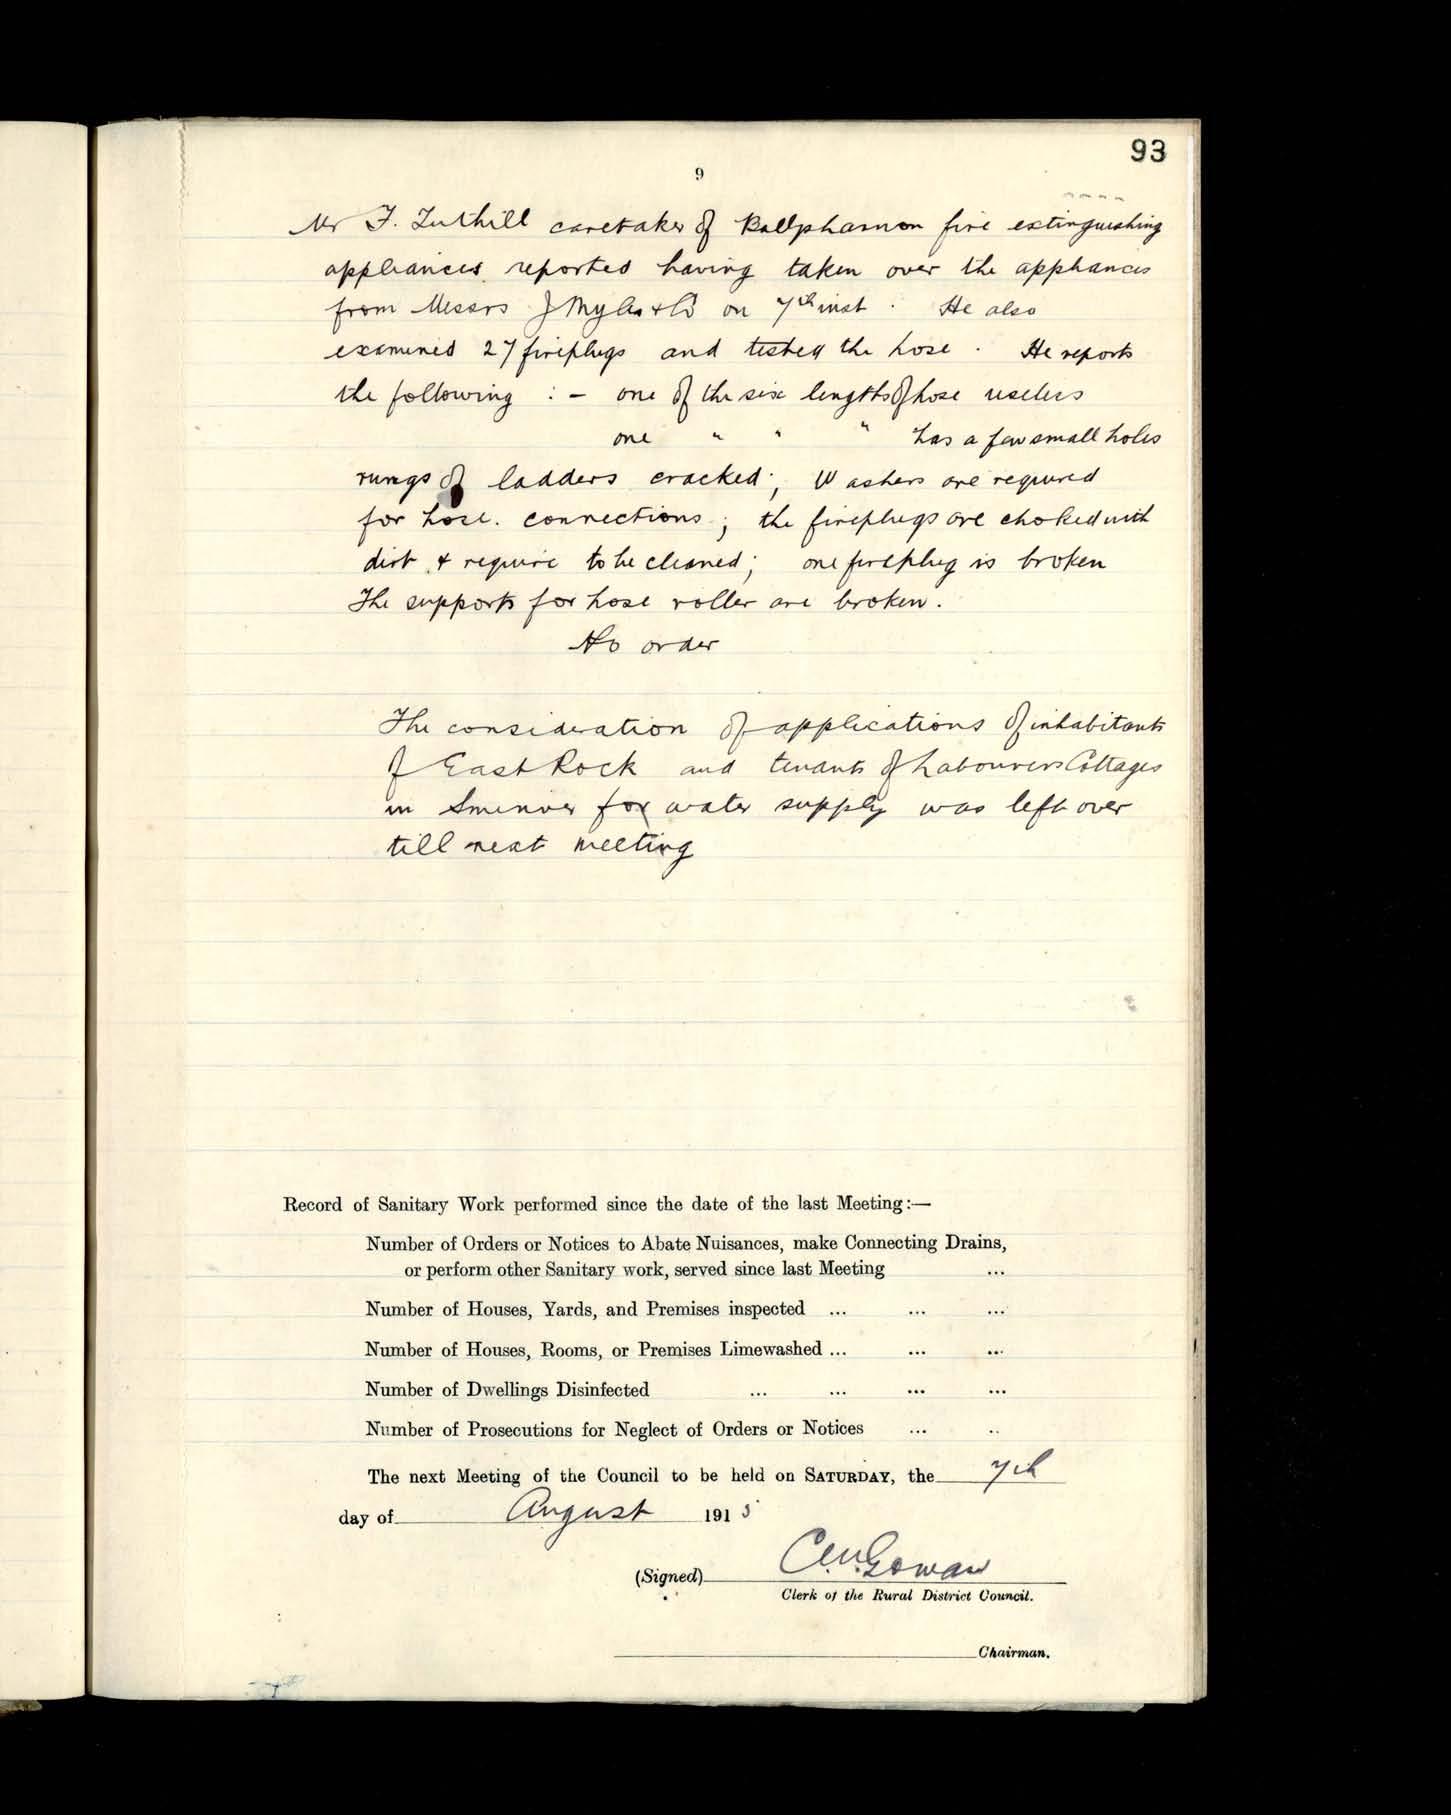 93
9
Mr F. Tuthill caretaker of Ballyshannon fire extinguishing
appliances reported having taken over the appliances
from Messrs J Myles & Co on 7th inst. He also
examined 27 fireplugs and tested the hose. He reports
the following :- one of the six lengths of hose useless
one " " " has a few small holes
rungs of ladders cracked; Washers are required
for hose. connections; the fireplugs are choked with
dirt & require to be cleaned; one fireplug is broken
The supports for hose roller are broken.
No order
The consideration of applications of inhabitants
of East Rock and tenants of Labourers Cottages
in for water supply was left over
till next meeting
Record of Sanitary Work performed since the date of the last Meeting:—
Number of Orders or Notices to Abate Nuisances, make Connecting Drains,
or perform other Sanitary work, served since last Meeting ...
Number of Houses, Yards, and Premises inspected ... ... ...
Number of Houses, Rooms, or Premises Limewashed ... ... ...
Number of Dwellings Disinfected ... ... ... ...
Number of Prosecutions for Neglect of Orders or Notices ... ..
The next Meeting of the Council to be held on SATURDAY, the 7th
day of August 1915
(Signed)
Clerk of the Rural District Council.
Chairman.